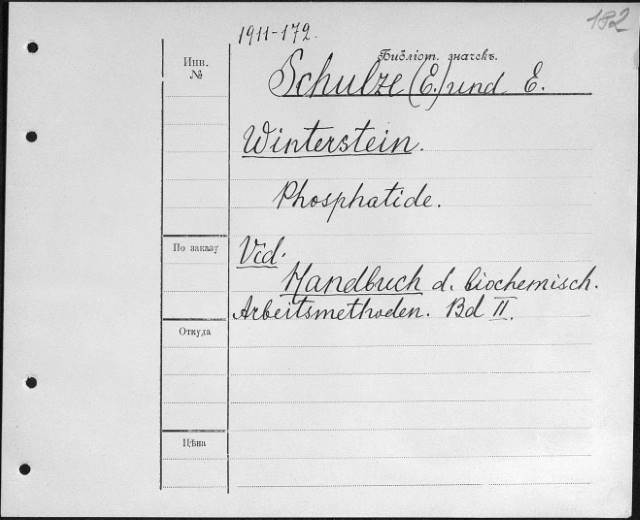 182
1911-172.
Инв.
№
Библіот. значекъ.
Schulze (E.) und E.
Winterstein.
Phosphatide.
По заказу
Vid.
Handbuch d. biochemisch.
Arbeitsmethoden. Bd II.
Откуда
Цѣна